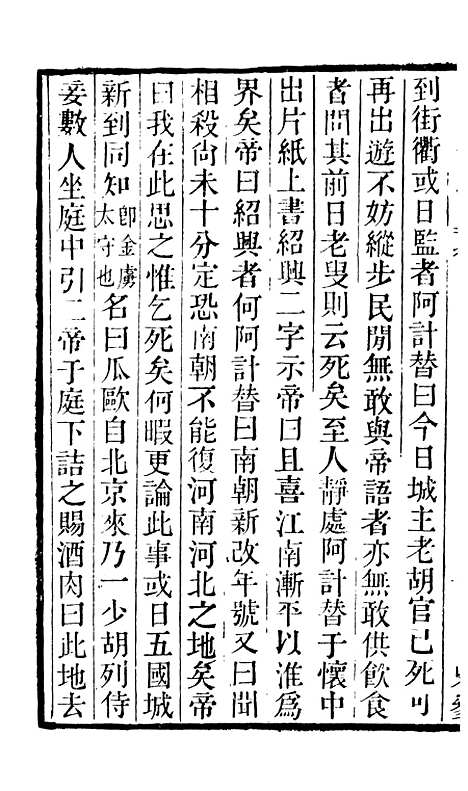 到街衢或日監者阿計替曰今日城主老胡官已死可
再出遊不妨縱步民間無敢與帝語者亦無敢供飲食
者問其前日老叟則云死矣至人靜處阿計替于懷中
出片紙上書紹興二字示帝曰且喜江南漸平以淮爲
界矣帝曰紹興者何阿計替曰南朝新改年號又曰聞
相殺尙未十分定恐南朝不能復河南河北之地矣帝
曰我在此思之惟乞死矣何暇更論此事或日五國城
新到同知卽金虜太守也名曰瓜歐自北京來乃一少胡列侍
妾數人坐庭中引二帝于庭下詰之賜酒肉曰此地去